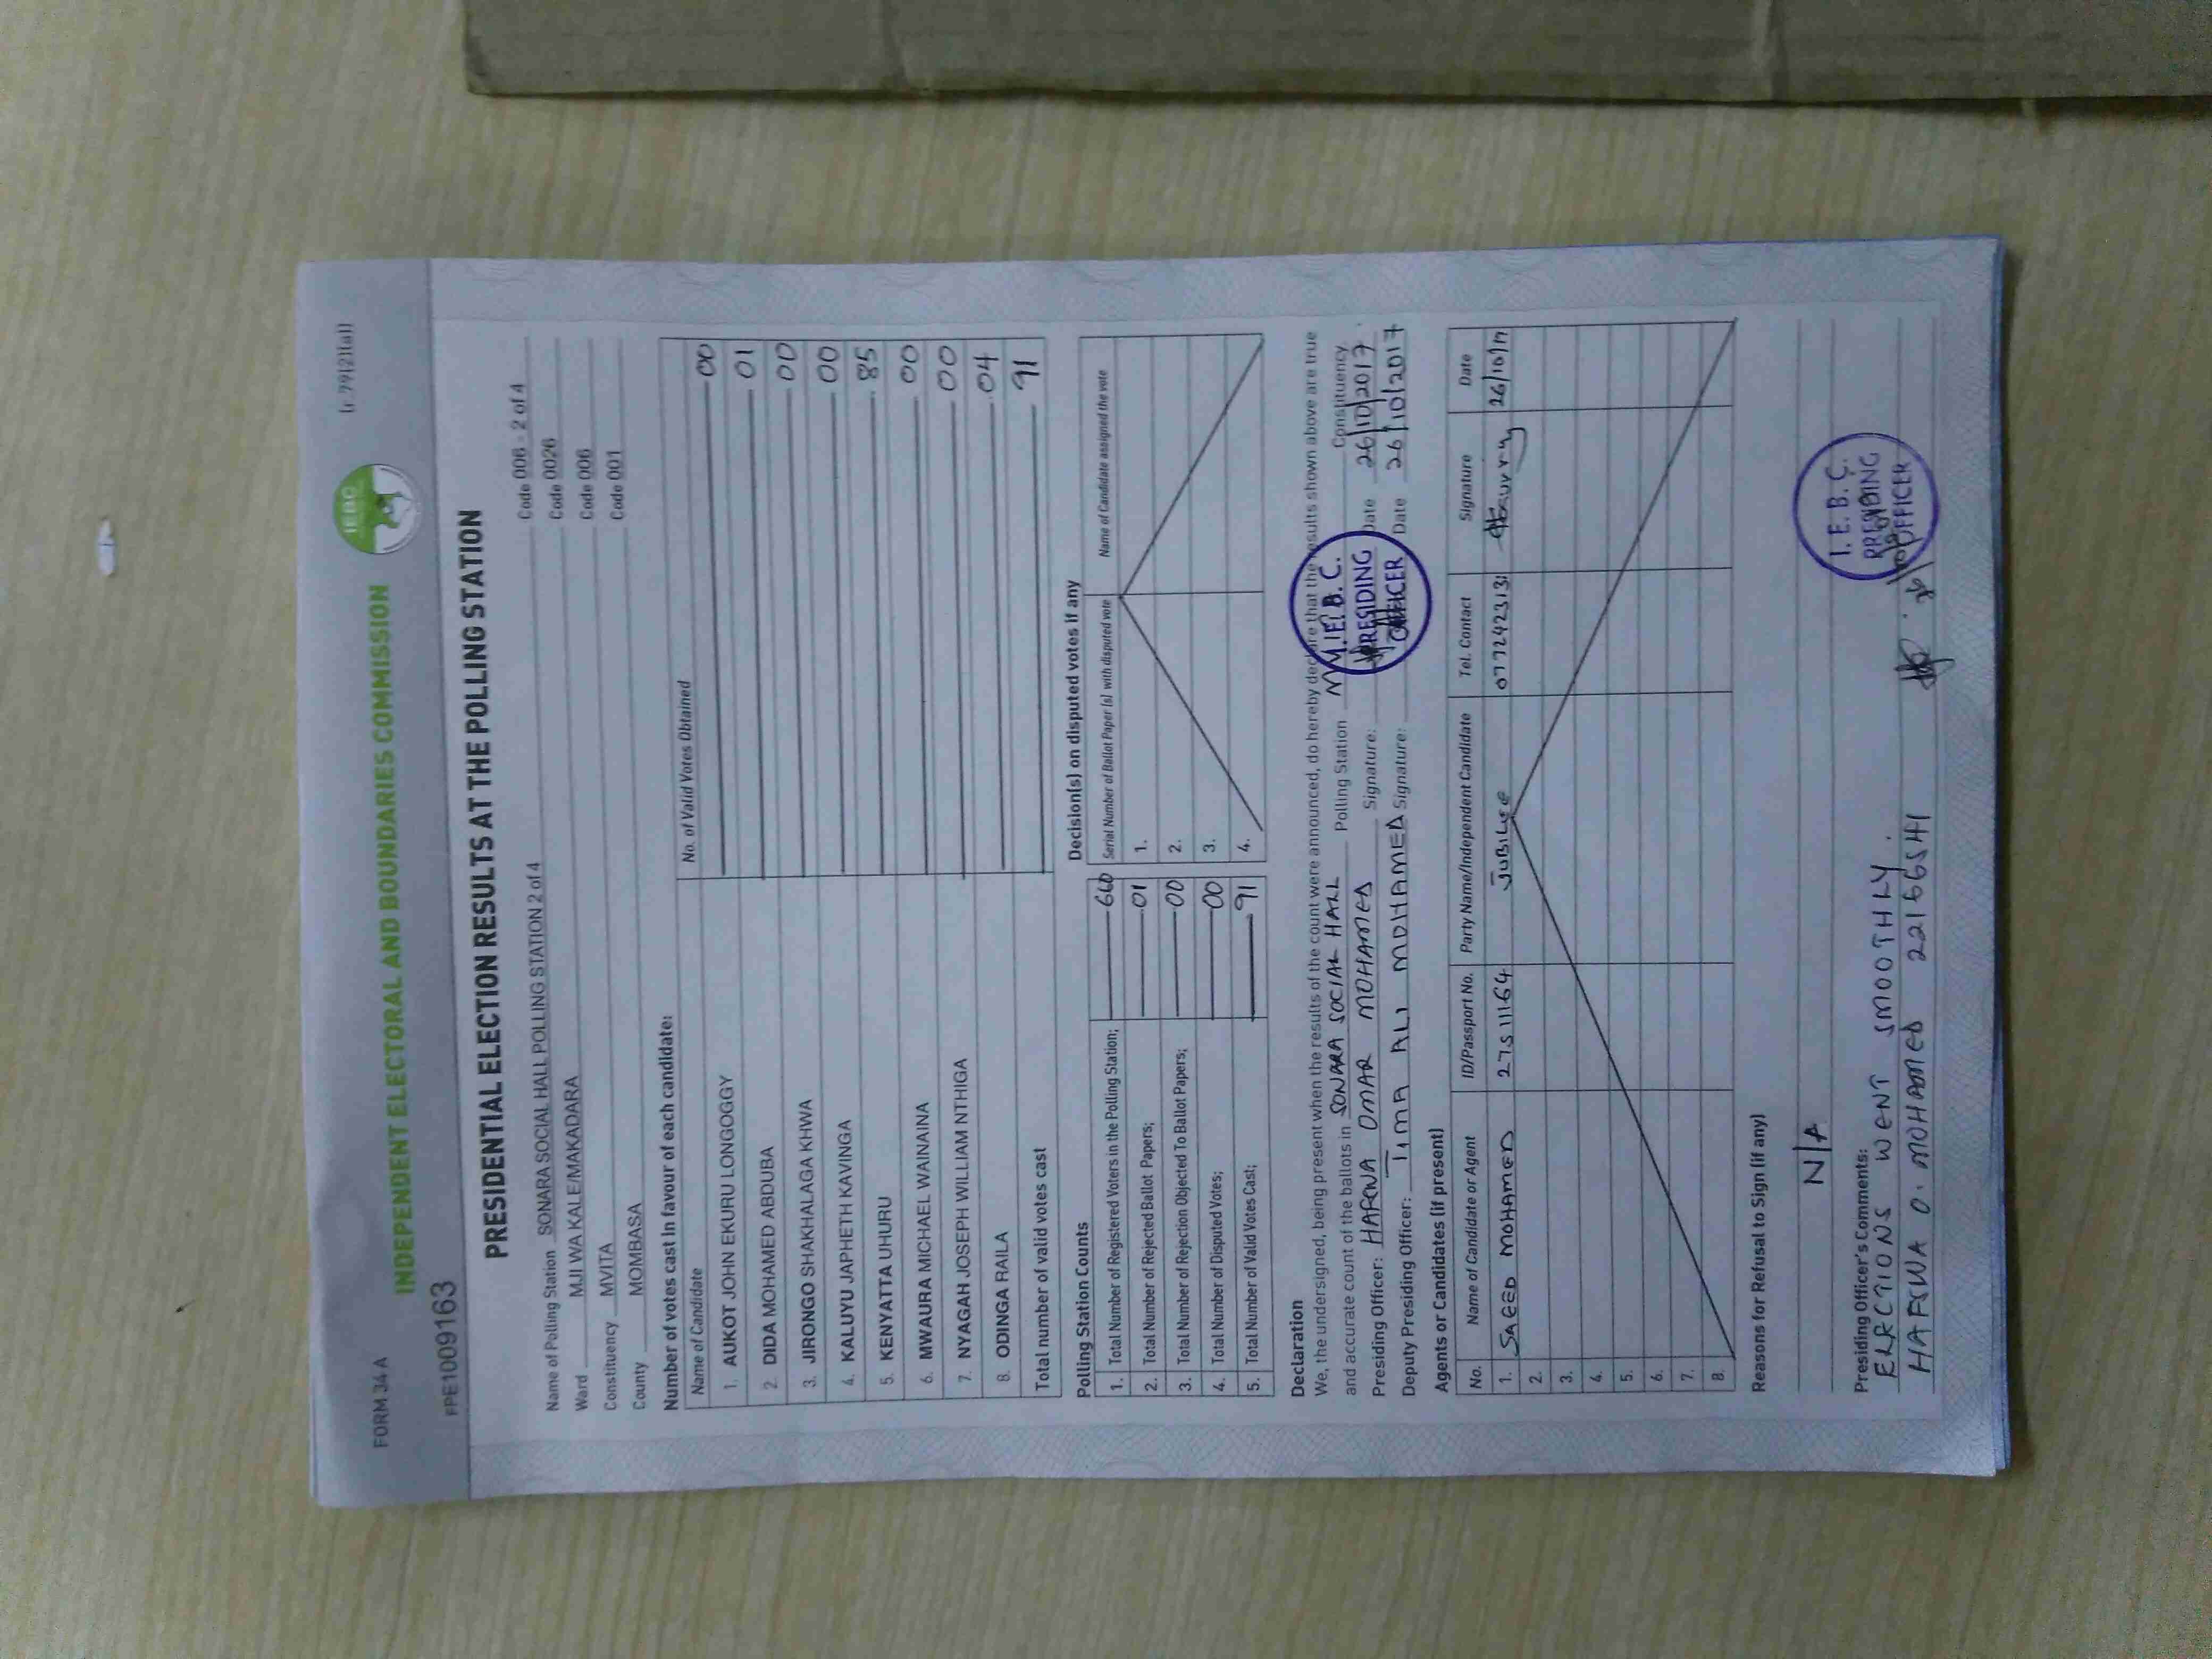 FORM 34 A
(r.79(2)(a))
INDEPENDENT ELECTORAL AND BOUNDARIES COMMISSION
IEBC
FPE1009163
PRESIDENTIAL ELECTION RESULTS AT THE POLLING STATION
Name of Polling Station SONARA SOCIAL HALL POLLING STATION 2 of 4 Code 006 - 2 of 4
Ward MJI WA KALE/MAKADARA Code 0026
Constituency MVITA Code 006
County MOMBASA Code 001
Number of votes cast in favour of each candidate:
Name of Candidate No. of Valid Votes Obtained
1. AUKOT JOHN EKURU LONGOGGY 00
2. DIDA MOHAMED ABDUBA 01
3. JIRONGO SHAKHALAGA KHWA 00
4. KALUYU JAPHETH KAVINGA 00
5. KENYATTA UHURU 85
6. MWAURA MICHAEL WAINAINA 00
7. NYAGAH JOSEPH WILLIAM NTHIGA 00
8. ODINGA RAILA 04
Total number of valid votes cast 91
Polling Station Counts
1. Total Number of Registered Voters in the Polling Station; 660
2. Total Number of Rejected Ballot Papers; 01
3. Total Number of Rejection Objected To Ballot Papers; 00
4. Total Number of Disputed Votes; 00
5. Total Number of Valid Votes Cast; 91
Decision(s) on disputed votes if any
Serial Number of Ballot Paper (s) with disputed vote Name of Candidate assigned the vote
1.
2.
3.
4.
Declaration
We, the undersigned, being present when the results of the count were announced, do hereby declare that the results shown above are true
and accurate count of the ballots in SONARA SOCIAL HALL Polling Station Constituency.
Presiding Officer: HAFSWA OMAR MOHAMED Signature: Date 26/10/2017.
Deputy Presiding Officer: TIMA ALI MOHAMED Signature: Date 26/10/2017
I.E.B.C.
PRESIDING
OFFICER
Agents or Candidates (if present)
No. Name of Candidate or Agent ID/Passport No. Party Name/Independent Candidate Tel. Contact Signature Date
1. SAEED MOHAMED 27511164 JUBILEE 26/10/17
2.
3.
4.
5.
6.
7.
8.
Reasons for Refusal to Sign (if any)
N/A
Presiding Officer's Comments:
ELECTIONS WENT SMOOTHLY.
HAFSWA O. MOHAMED 22166541
I.E.B.C.
PRESIDING
OFFICER